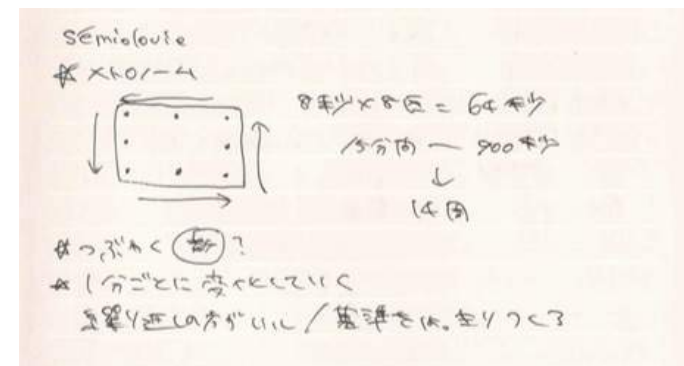 sémiologie
☆ メトロノーム
8秒×8区 = 64秒
15分間 — 900秒
↓
14周
☆ つぶやく ?
☆ 1分ごとに変化していく
繰り返しの方がいい / 基準をつくる